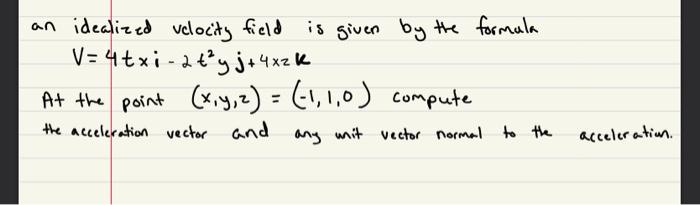 an idealized velocity field is given by the formula
V = 4txi - 2t²yj + 4xzk
At the point (x,y,z) = (-1,1,0) compute
the acceleration vector and any unit vector normal to the acceleration.